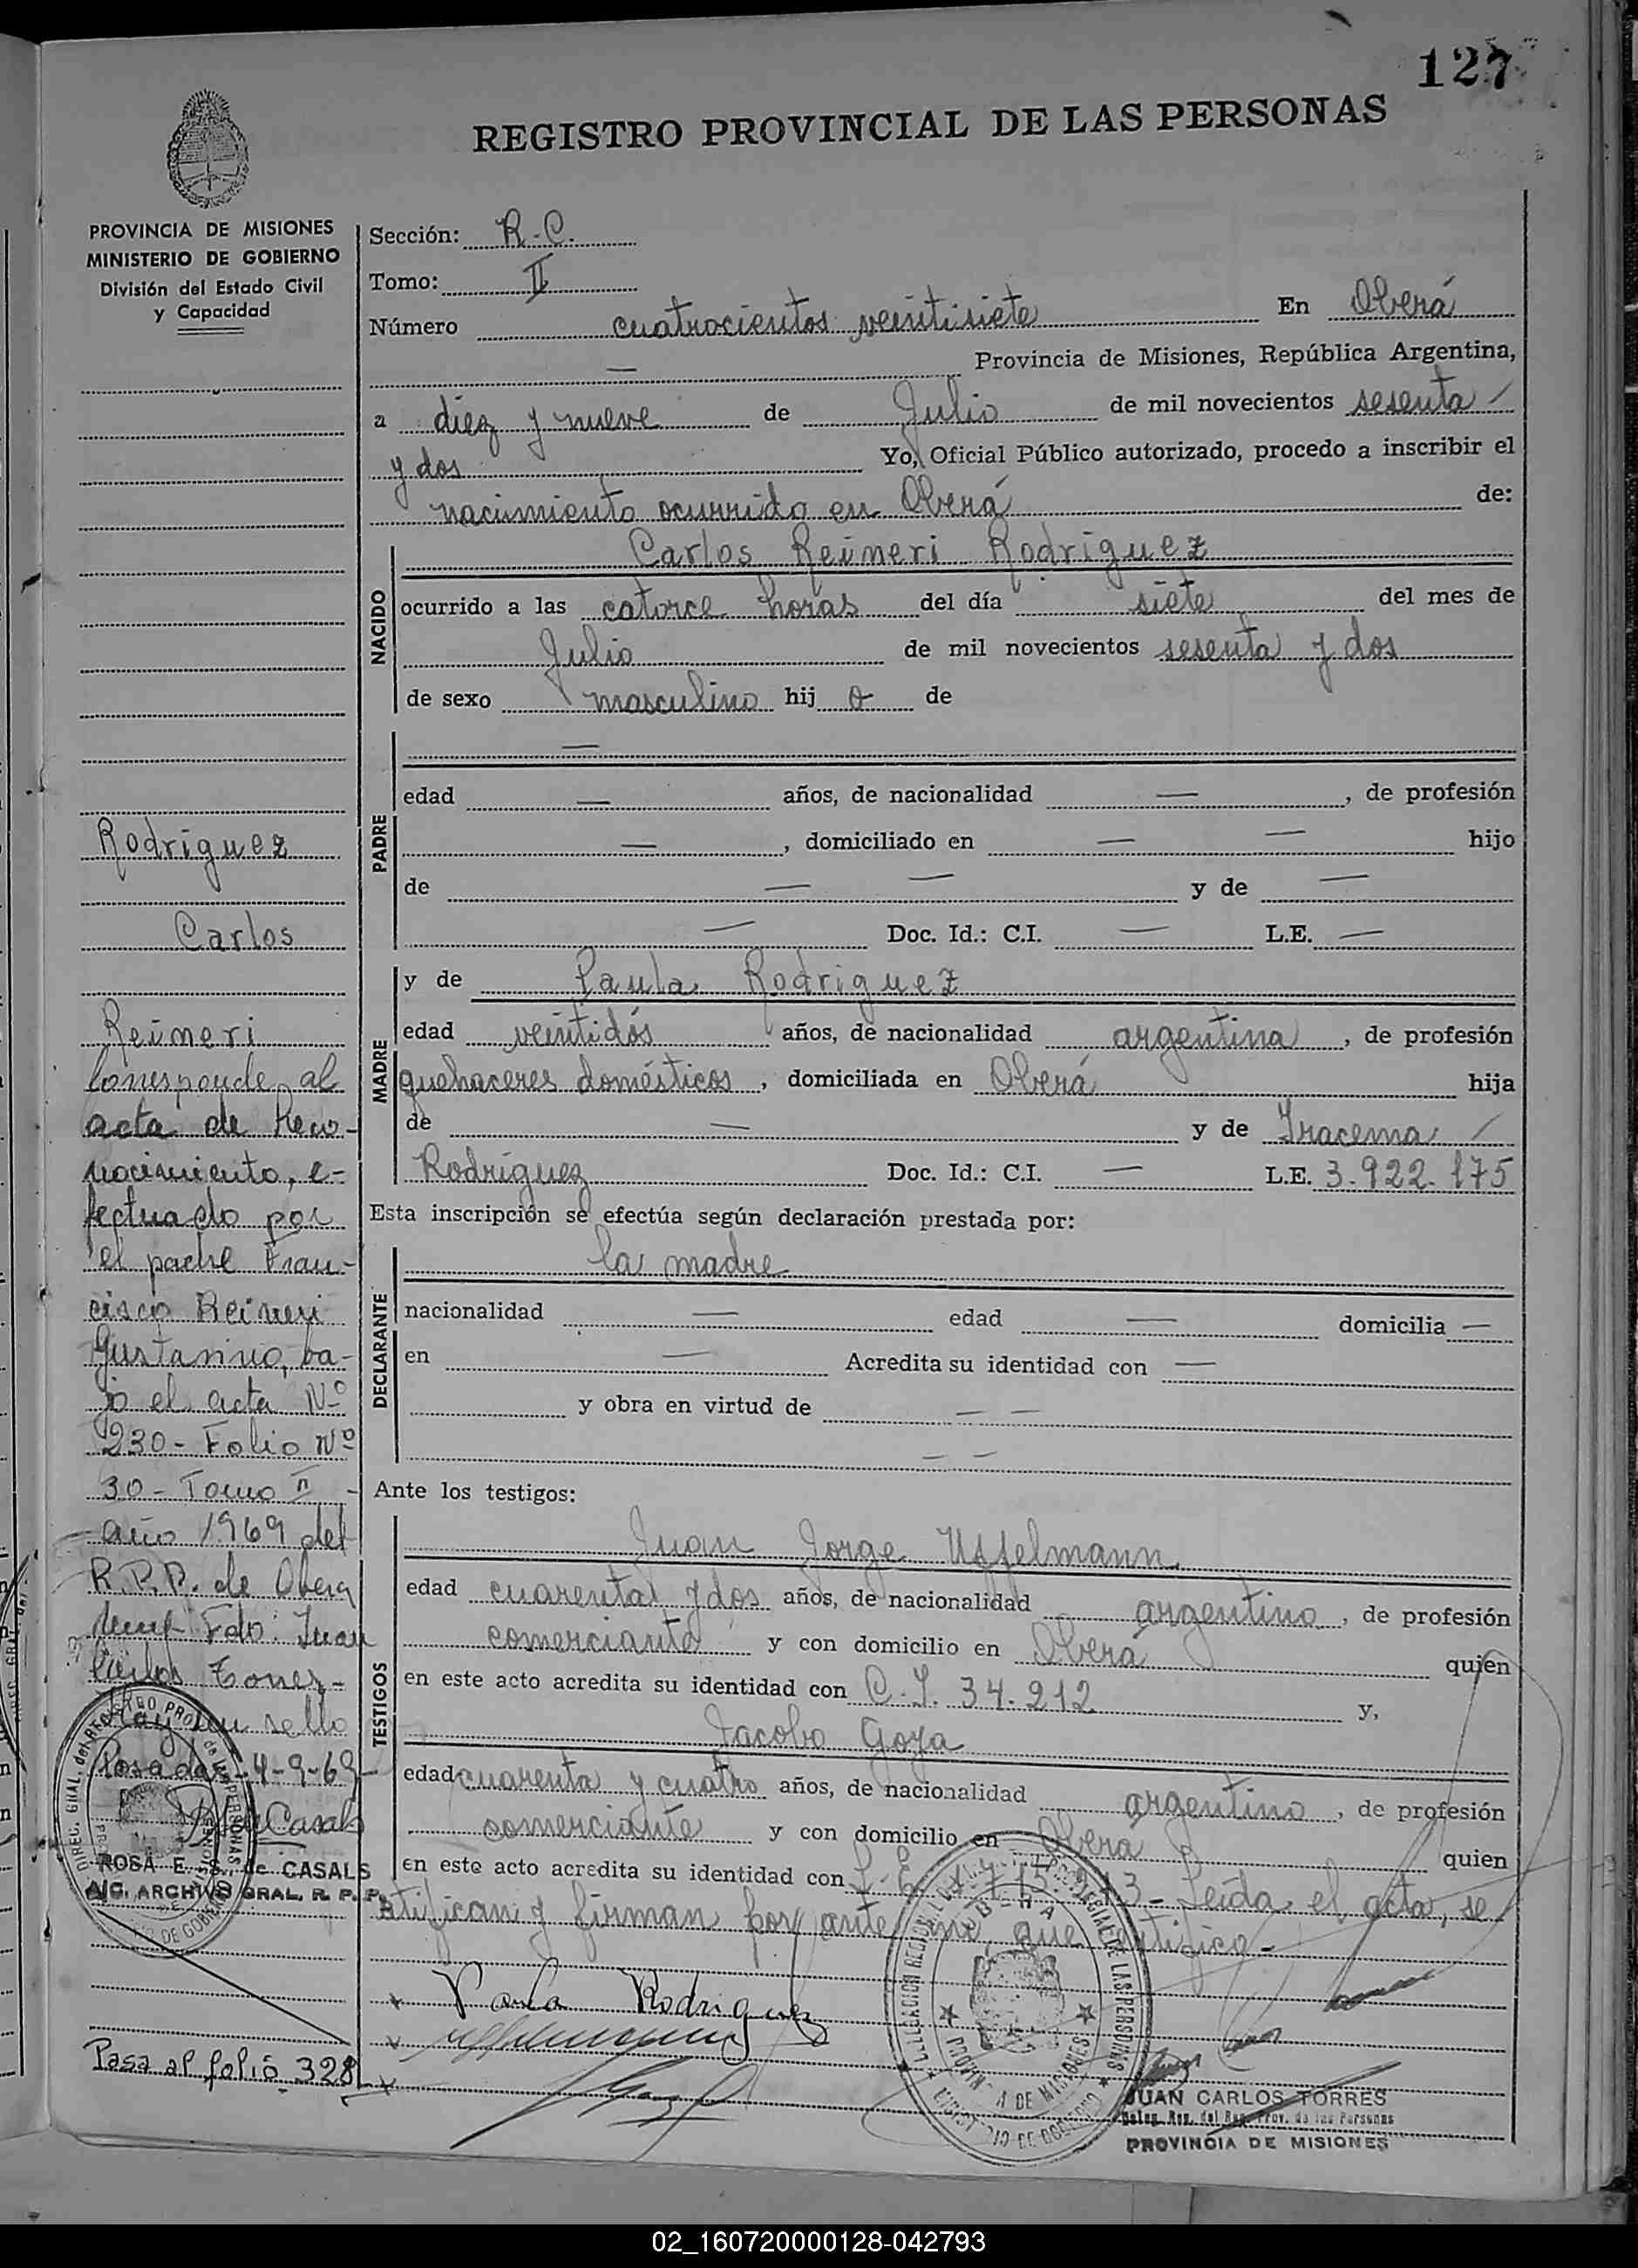 127
REGISTRO PROVINCIAL DE LAS PERSONAS
PROVINCIA DE MISIONES
MINISTERIO DE GOBIERNO
División del Estado Civil
y Capacidad
Rodriguez
Carlos
Reineri
Corresponde al
acta de Reco-
nocimiento, e-
fectuado por
el padre Fran-
cisco Reineri
Gustavino, ba-
jo el acta Nº
230 - Folio Nº
30 - Tomo II -
año 1969 del
R.P.P. de Obera
Fdo: Juan
Carlos Torres-
Hay un sello
Posadas 4-9-69-
ROSA E. S. de CASALS
A/C. ARCHIVO GRAL. R. P. P.
Pasa al folio 328
Sección: R.C.
Tomo: II
Número cuatrocientos veintisiete En Oberá
— Provincia de Misiones, República Argentina,
a diez y nueve de Julio de mil novecientos sesenta
y dos Yo, Oficial Público autorizado, procedo a inscribir el
nacimiento ocurrido en Oberá de:
NACIDO
Carlos Reineri Rodriguez
ocurrido a las catorce horas del día siete del mes de
Julio de mil novecientos sesenta y dos
de sexo masculino hij o de
PADRE
—
edad — años, de nacionalidad —, de profesión
—, domiciliado en — — hijo
de — — y de —
— Doc. Id.: C.I. — L.E. —
MADRE
y de Paula Rodriguez
edad veintidós años, de nacionalidad argentina, de profesión
quehaceres domésticos, domiciliada en Oberá hija
de — y de Iracema
Rodríguez Doc. Id.: C.I. — L.E. 3.922.175
Esta inscripción se efectúa según declaración prestada por:
DECLARANTE
la madre
nacionalidad — edad — domicilia —
en — Acredita su identidad con —
y obra en virtud de — —
— —
Ante los testigos:
TESTIGOS
Juan Jorge Usselmann
edad cuarenta y dos años, de nacionalidad argentino, de profesión
comerciante y con domicilio en Oberá quien
en este acto acredita su identidad con C.I. 34.212 y,
Jacobo Goya
edad cuarenta y cuatro años, de nacionalidad argentino, de profesión
comerciante y con domicilio en Oberá quien
en este acto acredita su identidad con L.E. Leída el acta, se
ratifican y firman por ante mí, que certifico-
Paula Rodriguez
JUAN CARLOS TORRES
Deleg. Reg. del Reg. Prov. de las Personas
PROVINCIA DE MISIONES
02_160720000128-042793